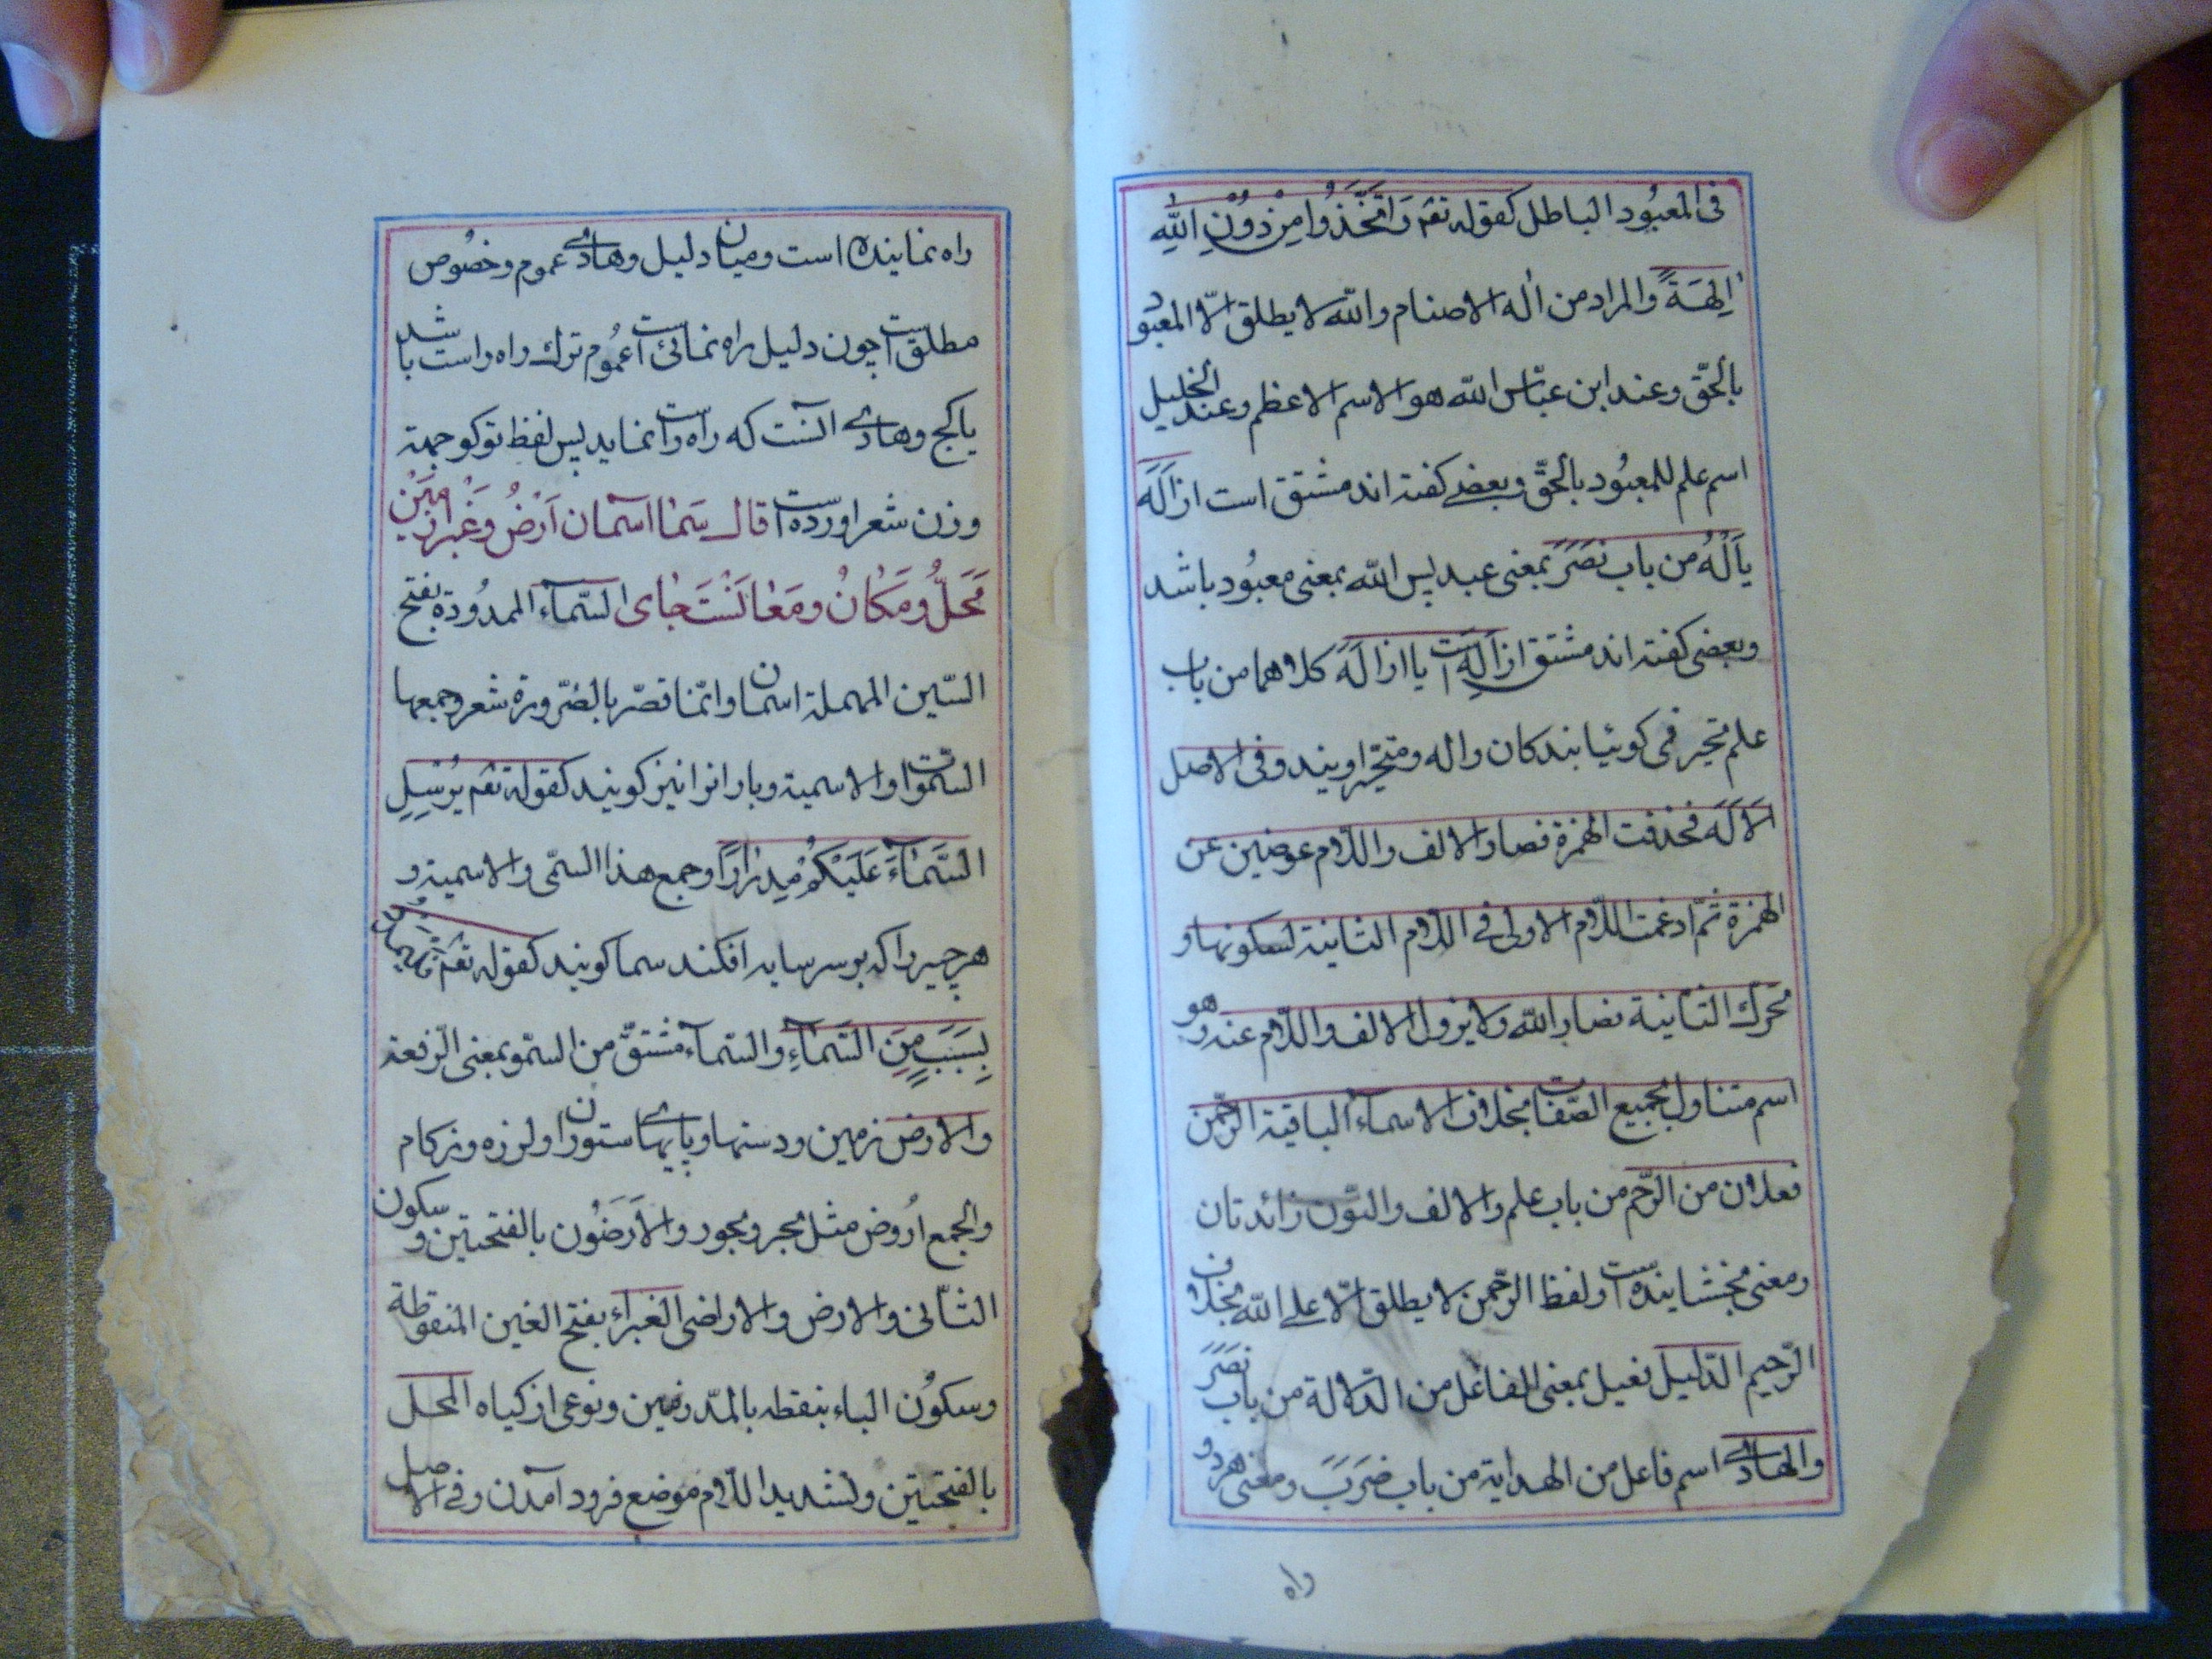 فی المعبُود الباطل کقوله تعم وَاتَّخَذُوا مِنْ دُوْنِ اللّٰهِ
اٰلِهَةً والمراد من اٰله الاصنام واللّه لا یطلق الّا المعبود
بالحّق وعند ابن عبّاس اللّه هو الاسم الاعظم وعند الخلیل
اسم علم للمعبُود بالحّق وبعضے کفته اند مشتق است از اَلَهَ
یأْلُهُ من باب نَصَرَ بمعنی عبد پس اللّه بمعنی معبُود باشد
وبعضی کفته اند مشتق از اَلِهَ است یا از اَلَهَ کلاهما من باب
علم تحیر فی کوئیا بندکان واله ومتحیر اویند وفی الاصل
اَلْاَلَه فحذفت الهمزة فصار الالف واللّام عوضین عن
الهمزة ثمّ ادغمت اللّام الاولی فی اللّام الثانیة لسکونها و
تحرك الثانیة فصار اللّه ولا یزول الالف واللّام عنه وهو
اسم متناول بجمیع الصّفات بخلاف الاسماء الباقیة الرّحمن
فعلان من الرّحم من باب علم والالف والنّون زائدتان
ومعنی بخشاینده است ولفظ الرّحمن لا یطلق الّا علے اللّه بخلاف
الرّحیم الدّلیل فعیل بمعنی الفاعل من الدّلالة من باب نَصَرَ
والهادے اسم فاعل من الهدایة من باب ضَرَبَ ومعنی هردو
راه
راه نماینده است ومیان دلیل وهادے عموم وخصُوص
مطلق است چون دلیل راه نمائی است اعمُوم ترك راه راست باشد
یا کج وهادے انست که راه راست نماید پس لفظ توکو جهة
وزن شعر اورده است قال سَمٰا اسمان اَرْضُ وغَبْرا زمین
مَحَلُّ ومَکانُ ومَعٰانَسْت جٰای السّماء الممدُودة بفتح
السّین المهملة اسمان وانّما قصّر بالضّرورة شعر وجمعها
السّموات والاسمیة وبارانرا نیز کویند کقوله تعم یُرْسِلِ
السَّمٰاءَ عَلَیْکُمْ مِدْرٰارًا وجمع هذا السّمی والاسمیة و
هر چیز را که بر سر سایه افکند سما کویند کقوله تعم
بِسَبَبٍ مِنَ السَّمٰاءِ والسّماء مشتقّ من السّمو بمعنی الرّفعة
والارض زمین ودستها وپایهاے ستوران ولرزه وزکام
والجمع ارُوض مثل بحر وبحور والاَرَضُون بالفتحتین وسکون
الثّانی والارض والاراضی الغبراء بفتح الغین المنقوطة
وسکوُن الباء بنقطه بالمدّ زمین ونوعی از کیاه المحل
بالفتحتین ولتشدید اللّام موضع فرود آمدن وفی الاصل